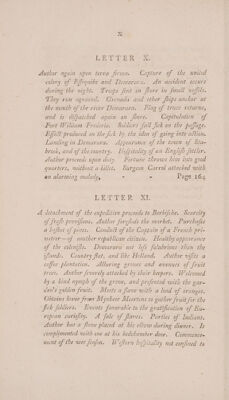 x
LETTER X.
Author again upon terra firma. Capture of the united
colony of Essequibo and Demarara. An accident occurs
during the night. Troops sent in shore in small vessels.
They run aground. Grenada and other ships anchor at
the mouth of the river Demarara. Flag of truce returns,
and is dispatched again on shore. Capitulation of
Fort William Frederic. Soldiers fall sick on the passage.
Effect produced on the sick by the idea of going into action.
Landing in Demarara. Appearance of the town of Sta-
broek, and of the country. Hospitality of an English settler.
Author proceeds upon duty. Fortune throws him into good
quarters, without a billet. Surgeon Carrol attacked with
an alarming malady, - - Page 164
LETTER XI.
A detachment of the expedition proceeds to Berbische. Scarcity
of fresh provisions. Author forestals the market. Purchases
a basket of pines. Conduct of the Captain of a French pri-
vateer—of another republican citizen. Healthy appearance
of the colonists. Demarara not less salubrious than the
islands. Country flat, and like Holland. Author visits a
coffee plantation. Alluring groves and avenues of fruit
trees. Author severely attacked by their keepers. Welcomed
by a kind nymph of the grove, and presented with the gar-
den's golden fruit. Meets a slave with a load of oranges.
Obtains leave from Mynheer Meertens to gather fruit for the
sick soldiers. Events favorable to the gratification of Eu-
ropean curiosity. A sale of slaves. Parties of Indians.
Author has a slave placed at his elbow during dinner. Is
complimented with one at his bedchamber door. Commence-
ment of the wet season. Western hospitality not confined to